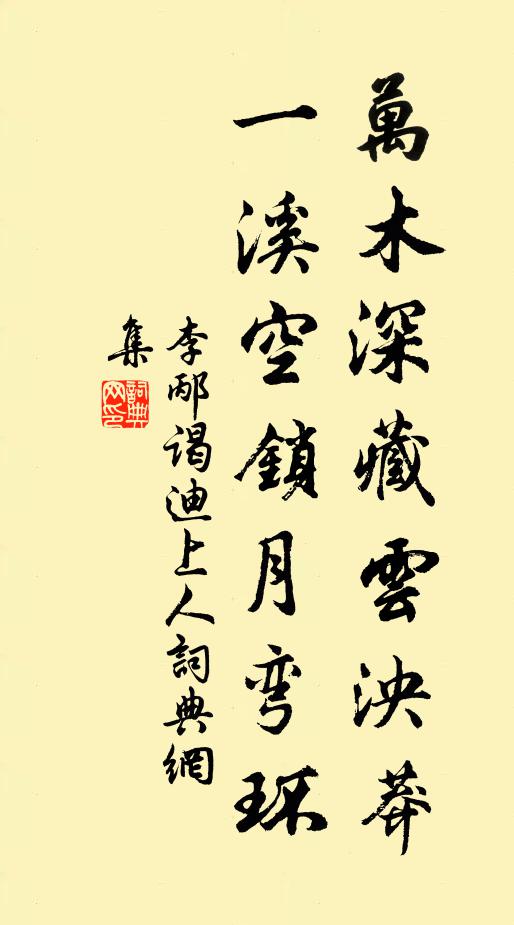 萬木深藏雲泱莽
一溪空鎖月弯环
李邴谒迪上人詞典網
集
詞典网印